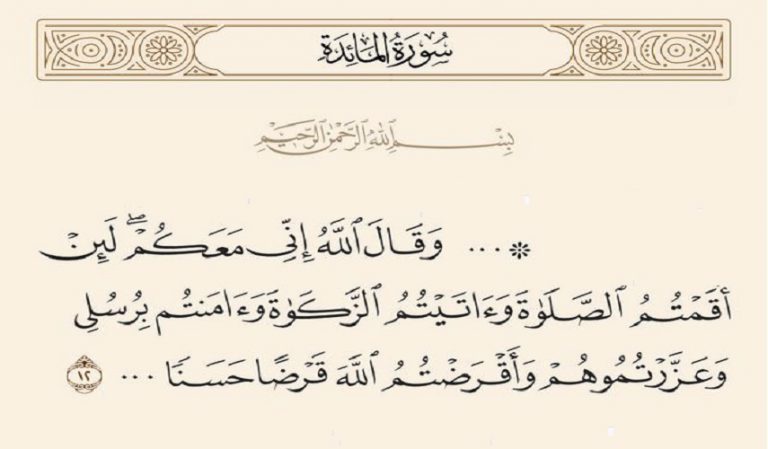 سُورَةُ المَائِدَةِ
بِسْمِ ٱللَّهِ ٱلرَّحْمَٰنِ ٱلرَّحِيمِ
* ... وَقَالَ ٱللَّهُ إِنِّي مَعَكُمْۖ لَئِنْ
أَقَمْتُمُ ٱلصَّلَوٰةَ وَءَاتَيْتُمُ ٱلزَّكَوٰةَ وَءَامَنتُم بِرُسُلِي
وَعَزَّرْتُمُوهُمْ وَأَقْرَضْتُمُ ٱللَّهَ قَرْضًا حَسَنًا ... ١٢